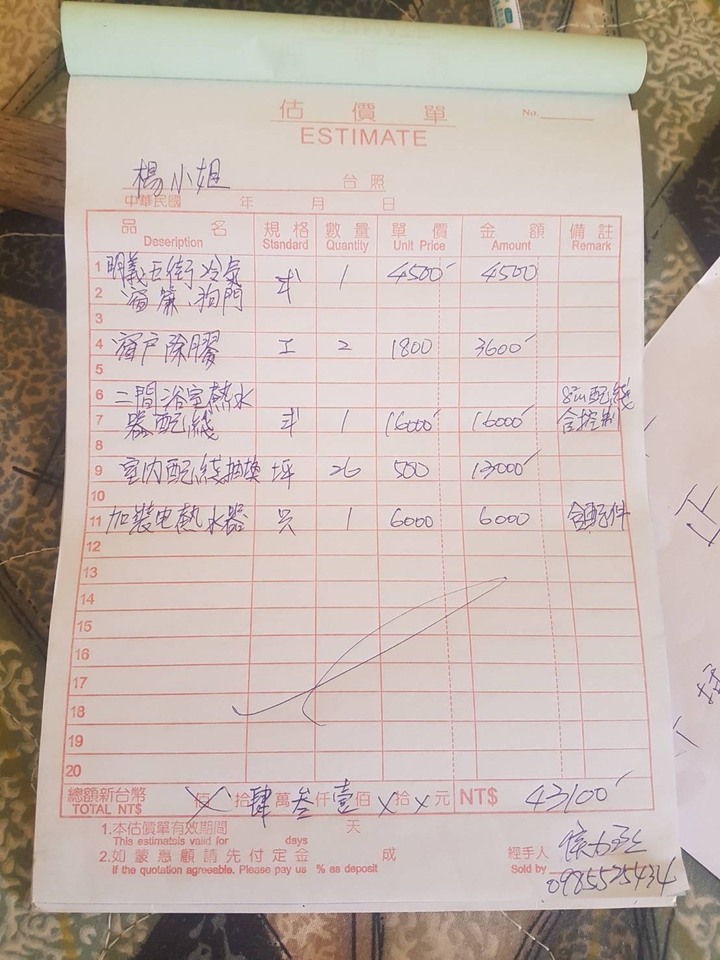 估價單
No.
ESTIMATE
楊小姐 台照
中華民國 年 月 日
品名 規格 數量 單價 金額 備註
Deseription Standard Quantity Unit Price Amount Remark
1 明義五街冷氣 式 1 4500 4500
2 窗簾、狗門
3
4 窗戶除膠 工 2 1800 3600
5
6 二間浴室熱水 8m配綫
7 器配綫 式 1 16000 16000 含控制
8
9 室內配綫抽換 坪 26 500 13000
10
11 加裝电熱水器 只 1 6000 6000 含配件
12
13
14
15
16
17
18
19
20
總額新台幣 X佰 拾肆萬叁仟壹佰X拾X元 NT$ 43100
TOTAL NT$
1.本估價單有效期間 天
This estimatsis valid for days
2.如蒙惠顧請先付定金 成
If the quotation agreeable. Please pay us % as deposit
經手人
Sold by 0985525434